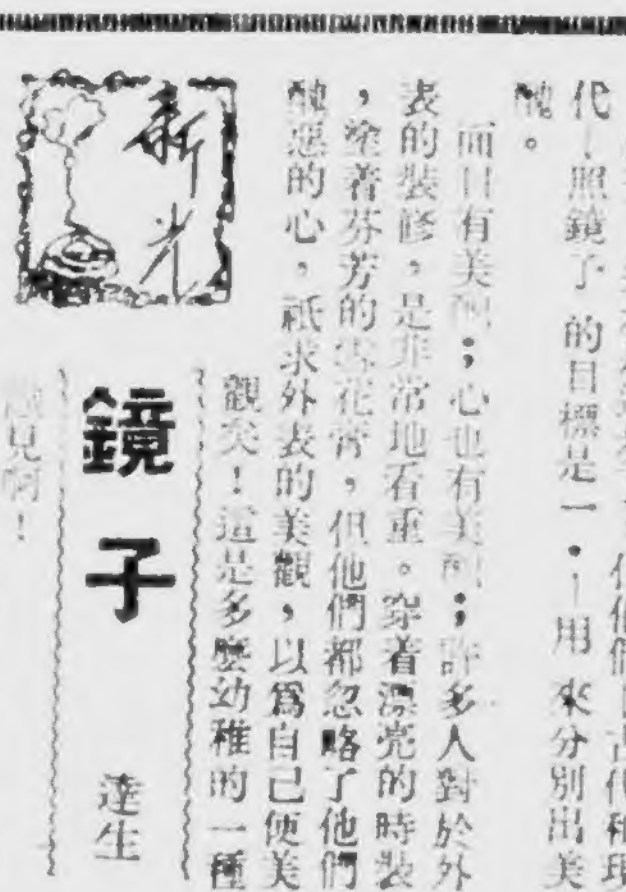 但他們自古代和現
代—照鏡子 的目標是一•—用 來分別出美
醜。
面目有美醜;心也有美醜;許多人對於外
表的裝修,是非常地看重。穿着漂亮的時裝
,塗着芬芳的雪花膏,但他們都忽略了他們
醜惡的心,祇求外表的美觀,以爲自己便美
觀矣!這是多麼幼稚的一種
見啊!
新光
鏡子
達生